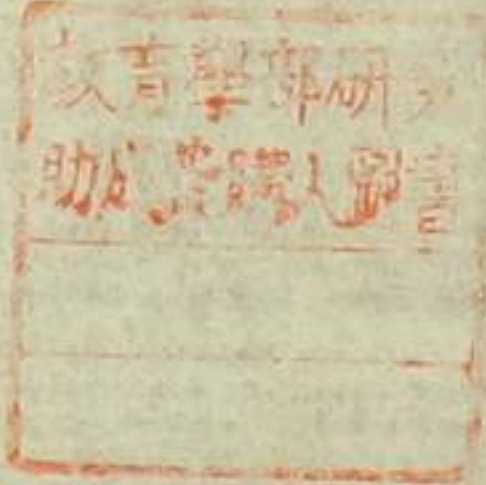 教育學部研究
助成費購入圖書